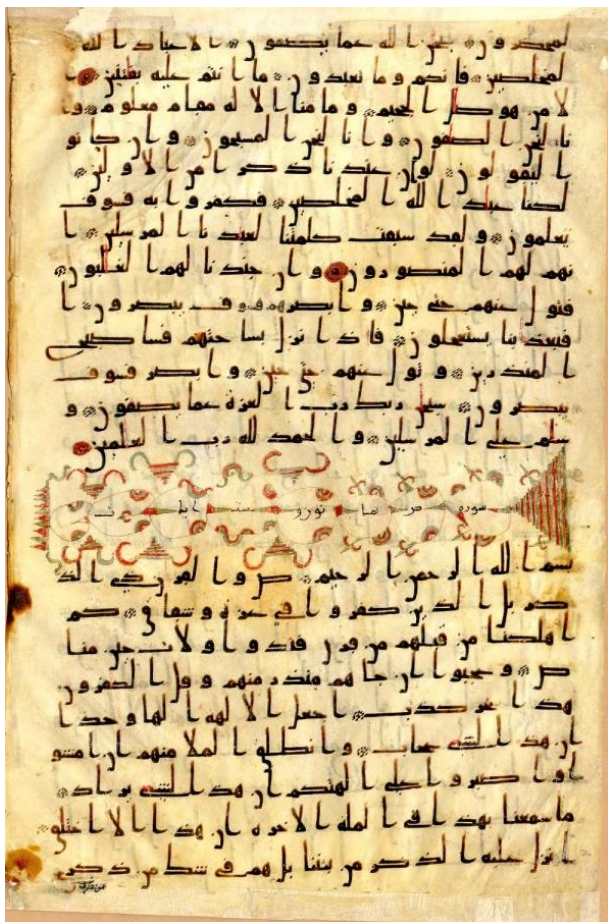 لمحضرون سبحن الله عما يصفون الا عباد الله
المخلصين فانكم وما تعبدون ما انتم عليه بفتنين ا
لا من هو صال الجحيم وما منا الا له مقام معلوم وا
نا لنحن الصفون وانا لنحن المسبحون وان كانو
ا ليقولون لو ان عندنا ذكرا من الاولين
لكنا عباد الله المخلصين فكفروا به فسوف
يعلمون ولقد سبقت كلمتنا لعبدنا المرسلين ا
نهم لهم المنصورون وان جندنا لهم الغلبون
فتول عنهم حتى حين وابصرهم فسوف يبصرون ا
فبعذبنا يستعجلون فاذا نزل بساحتهم فسا صبح
المنذرين وتول عنهم حتى حين وابصر فسوف
يبصرون سبحن ربك رب العزة عما يصفون و
سلم على المرسلين والحمد لله رب العلمين
سورة ص ثمانون وست ايات
بسم الله الرحمن الرحيم ص والقرن ذي الذ
كر بل الذين كفروا في عزة وشقاق كم
اهلكنا من قبلهم من قرن فندوا ولات حين منا
ص وعجبوا ان جاهم منذر منهم وقل الكفرون
هذا سحر كذب اجعل الالهة الها وحدا
ان هذا لشي عجاب وانطلق الملا منهم ان امشو
ا واصبروا على الهتكم ان هذا لشي يراد
ما سمعنا بهذا في الملة الاخرة ان هذا الا اختلق
ا نزل عليه الذكر من بيننا بل هم في شك من ذكري